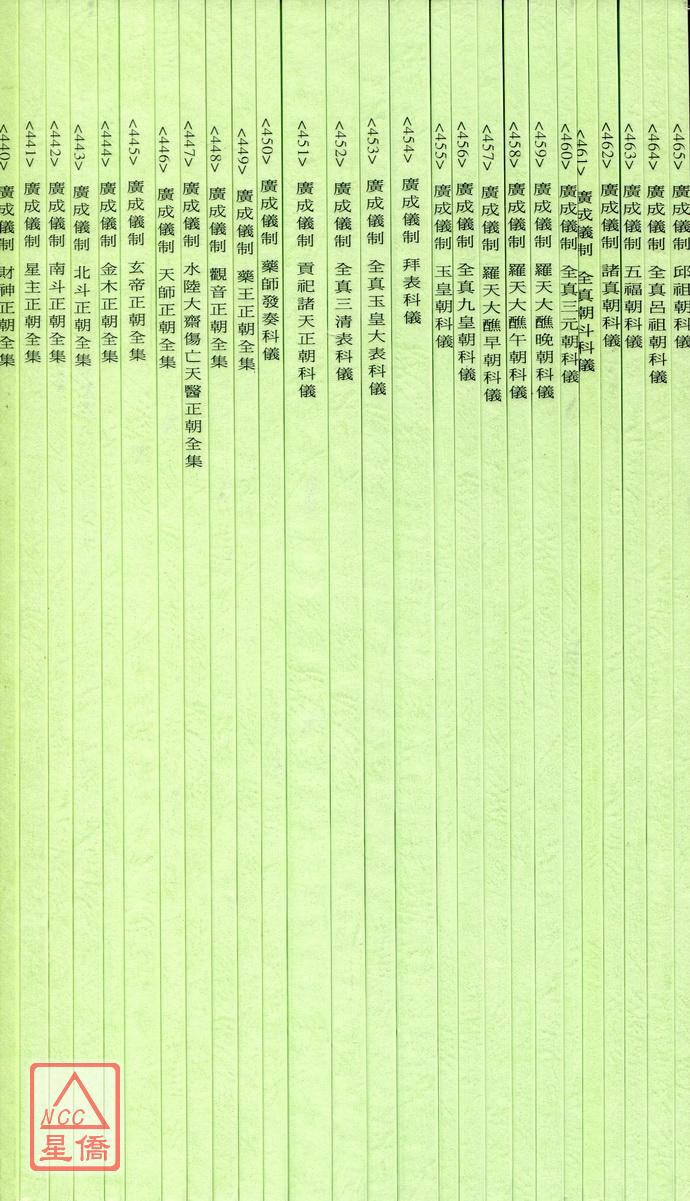 <465> 廣成儀制 邱祖朝科儀
<464> 廣成儀制 全真呂祖朝科儀
<463> 廣成儀制 五福朝科儀
<462> 廣成儀制 諸真朝科儀
<461> 廣成儀制 全真朝斗科儀
<460> 廣成儀制 全真三元朝科儀
<459> 廣成儀制 羅天大醮晚朝科儀
<458> 廣成儀制 羅天大醮午朝科儀
<457> 廣成儀制 羅天大醮早朝科儀
<456> 廣成儀制 全真九皇朝科儀
<455> 廣成儀制 玉皇朝科儀
<454> 廣成儀制 拜表科儀
<453> 廣成儀制 全真玉皇大表科儀
<452> 廣成儀制 全真三清表科儀
<451> 廣成儀制 貢祀諸天正朝科儀
<450> 廣成儀制 藥師發奏科儀
<449> 廣成儀制 藥王正朝全集
<448> 廣成儀制 觀音正朝全集
<447> 廣成儀制 水陸大齋傷亡天醫正朝全集
<446> 廣成儀制 天師正朝全集
<445> 廣成儀制 玄帝正朝全集
<444> 廣成儀制 金木正朝全集
<443> 廣成儀制 北斗正朝全集
<442> 廣成儀制 南斗正朝全集
<441> 廣成儀制 星主正朝全集
<440> 廣成儀制 財神正朝全集
NCC
星僑